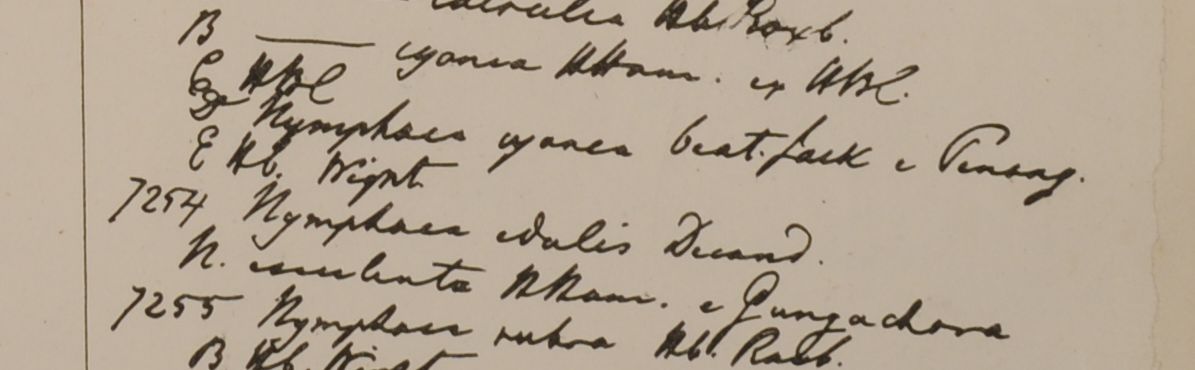 caerulea Hb. Roxb.
B ——— cyanea HHam. ex HBC.
C HBC
D Nymphaea cyanea beat. Jack e Penang.
E Hb. Wight.
7254 Nymphaea edulis Decand.
N. esculenta HHam. e Gungachora
7255 Nymphaea rubra Hb. Roxb.
B Hb. Wight